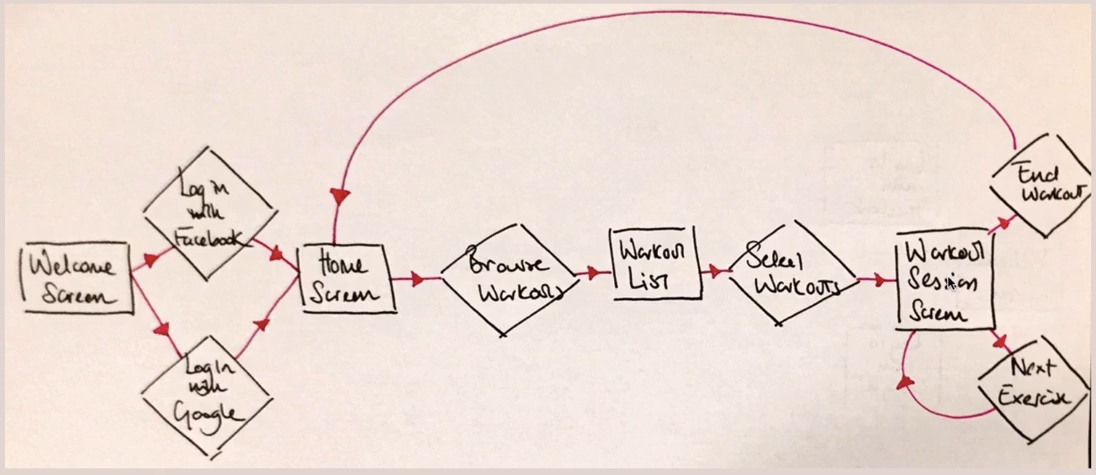 Welcome
Screen
Log in
with
Facebook
Login
with
Google
Home
Screen
Browse
Workouts
Workout
List
Select
Workouts
Workout
Session
Screen
End
Workout
Next
Exercise